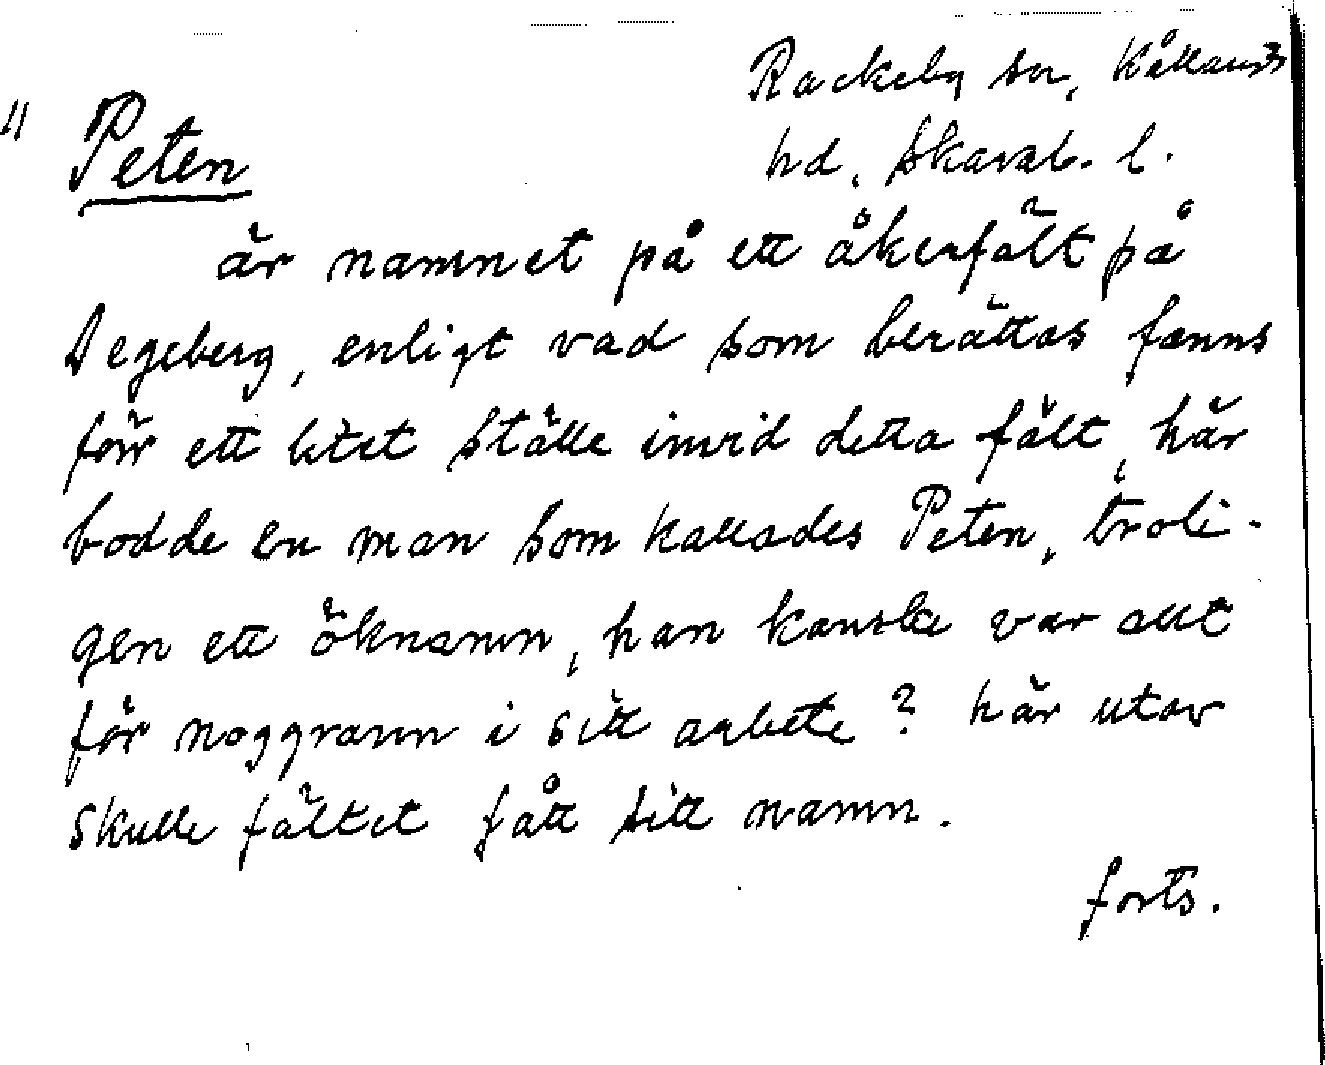 Rackeby sn, Kållands
hd, Skarab. l.
" Peten
är namnet på ett åkerfält på
Degeberg, enligt vad som berättas fanns
förr ett litet ställe invid detta fält, här
bodde en man som kallades Peten, troli-
gen ett öknamn, han kanske var allt
för noggrann i sitt arbete? här utav
skulle fältet fått sitt namn.
forts.